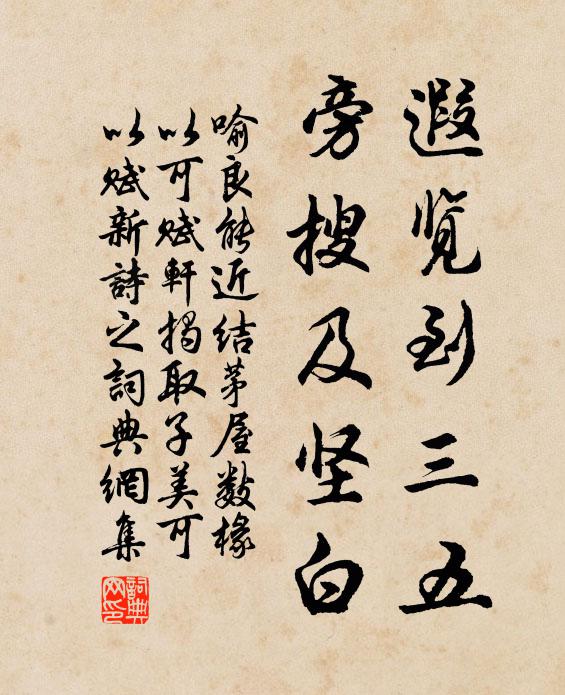 遐览到三五
旁搜及坚白
喻良能近结茅屋数椽
以可赋軒揭取子美可
以赋新詩之詞典網集
詞典网印